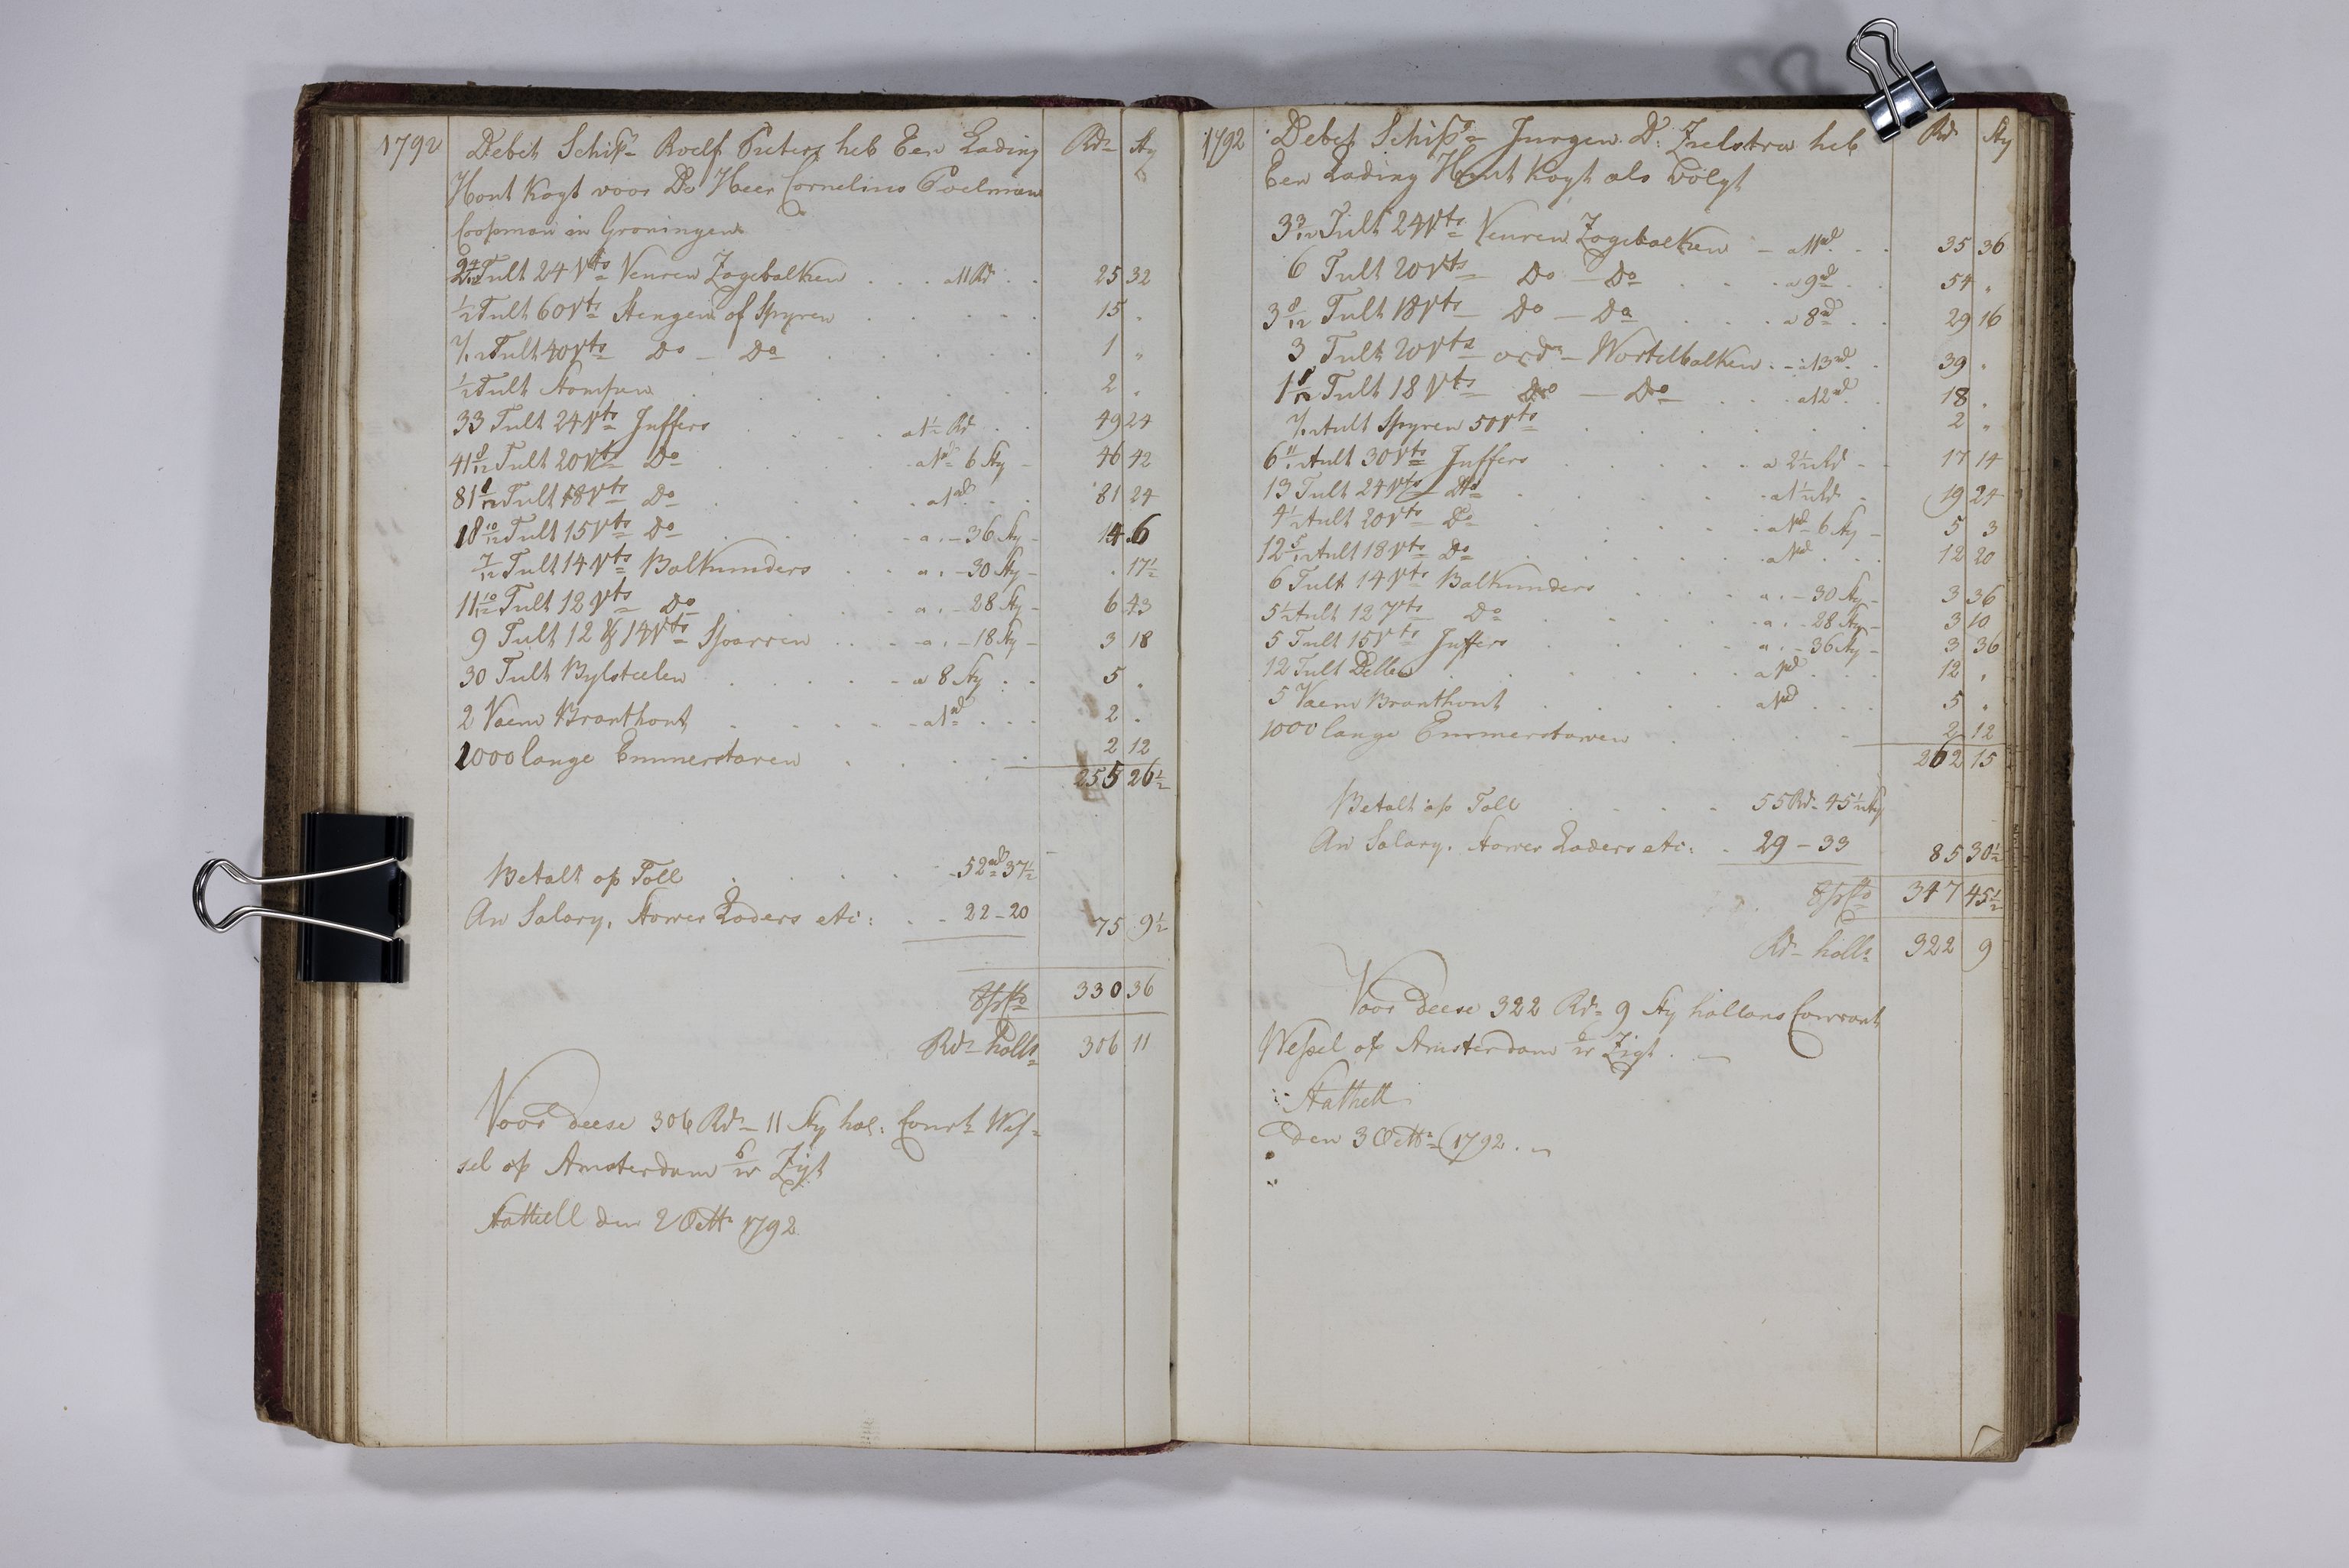 1792 Debet Schipr Roelf Pieters heb Een Lading Rdr Sty
Hout kogt voor Do Heer Cornelius Poelman
Coopman in Groningen
2 4/12 Tult 24 Vts Veuren Zagebalken a 11 Rd 25 32
1/2 Tult 60 Vts Stengen of Spyren 15 "
1/12 Tult 40 Vts Do - Do 1 "
1/2 Tult Stompen 2 "
33 Tult 24 Vts Juffers a 1 1/2 Rd 49 24
41 8/12 Tult 20 Vts Do a 1 rd 6 Sty 46 42
81 6/12 Tult 18 Vts Do a 1 rd 81 24
18 10/12 Tult 15 Vts Do a " - 36 Sty 14 6
7/12 Tult 14 Vts Balkunders a " - 30 Sty " 17 1/2
11 10/12 Tult 12 Vts Do a " - 28 Sty 6 43
9 Tult 12 & 14 Vts Sparren a " - 18 Sty 3 18
30 Tult Bylsteelen a 8 Sty 5 "
2 Vaem Branthout a 1 rd 2 "
1000 lange Emmerstaven 2 12
255 26 1/2
Betalt op Toll 52 rd 37 1/2
An Salary, Stower Laders etc: 22 - 20 75 9 1/2
330 36
Rdr holls 306 11
Voor deese 306 Rdr 11 Sty hol: Court Wes=
sel op Amsterdam 6/w Zigt
Stathell den 2 Octbr 1792
1792 Debet Schipr Jurgen D: Zielstra heb Rdr Sty
Een Lading Hout kogt als volgt
3 3/12 Tult 24 Vts Veuren Zagebalken - a 11 rd 35 36
6 Tult 20 Vts Do - Do a 9 rd 54 "
3 8/12 Tult 18 Vts Do - Do a 8 rd 29 16
3 Tult 20 Vts ordr - Wortelbalken - a 13 rd 39 "
1 6/12 Tult 18 Vts Do - Do a 12 rd 18 "
1/12 Tult Spyren 50 Vts 2 "
6 11/12 Tult 30 Vts Juffers a 2 1/2 Rd 17 14
13 Tult 24 Vts Do a 1 1/2 Rd 19 24
4 1/2 Tult 20 Vts Do a 1 rd 6 Sty 5 3
12 5/12 Tult 18 Vts Do a 1 rd 12 20
6 Tult 14 Vts Balkunders a " - 30 Sty 3 36
5 1/2 Tult 12 Vts Do a " - 28 Sty 3 10
5 Tult 15 Vts Juffers a " - 36 Sty 3 36
12 Tult Dellen a 1 rd 12 "
5 Vaem Branthout a 1 rd 5 "
1000 lange Emmerstaven 2 12
262 15
Betalt op Toll 55 Rd - 45 1/2 Sty
An Salary, Stower Laders etc: 29 - 33 85 30 1/2
347 45 1/2
Rdr holls 322 9
Voor deese 322 Rdr 9 Sty hollans Courant
Wessel op Amsterdam 6/w Zigt
Stathell
den 3 Octbr 1792